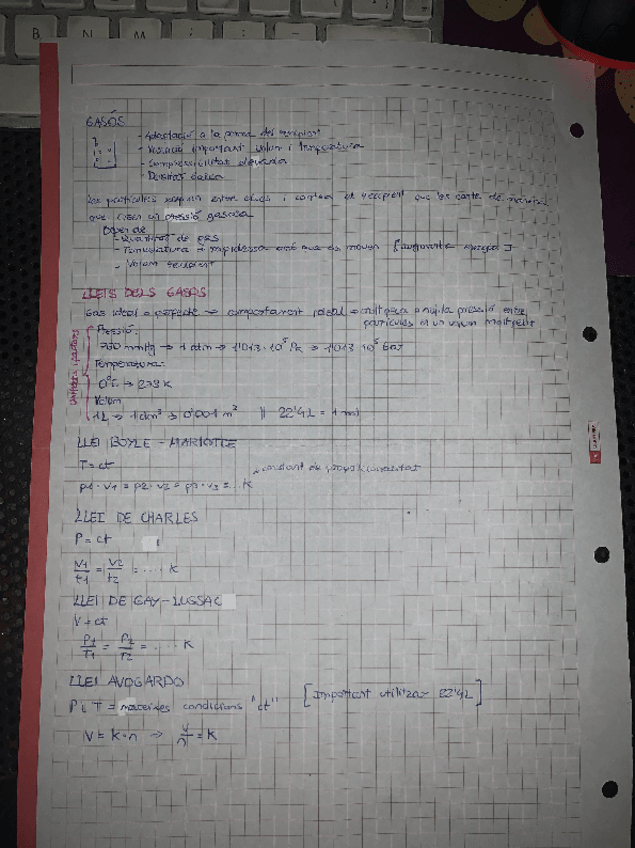 GASOS
- Adaptació a la forma del recipient
- Variació important volum i temperatura
- Compressibilitat elevada
- Densitat baixa
Les particules xoquen entre elles i contra el recipient que les conté de manera
que creen una pressió gasosa
Depèn de
- Quantitat de gas
- Temperatura → rapidessa amb que es mouen [augmenta energia]
- Volum recipient
LLEIS DELS GASOS
Gas ideal o perfecte → comportament ideal =
particules
Pressió:
760 mmHg → 1 atm → 1'013·10⁵ Pa → 1'013·10⁵ Bar
Temperatura:
0ºC → 273 K
Volum
1L → 1 dm³ → 0'001 m³ || 22'4L = 1 mol
LLEI BOYLE - MARIOTTE
T = ct
constant de proporcionalitat
p1·v1 = p2·v2 = p3·v3 = ... K
LLEI DE CHARLES
P = ct
V1/t1 = V2/t2 = .... K
LLEI DE GAY-LUSSAC
V = ct
P1/T1 = P2/T2 = .... K
LLEI AVOGARDO
P i T = mateixes condicions "ct" [Important utilitzar 22'4L]
V = K·n → V/n = K